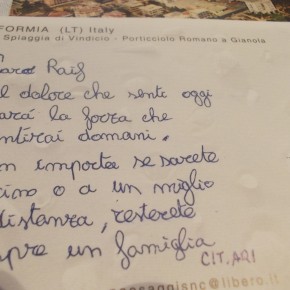 FORMIA (LT) Italy
Spiaggia di Vindicio - Porticciolo Romano a Gianola
Raif
l dolore che senti oggi
ará la forza che
ntirai domani.
n importa se sarete
cino o a un miglio
distanza, resterete
pre un famiglia
CIT. ARI
snc@libero.it